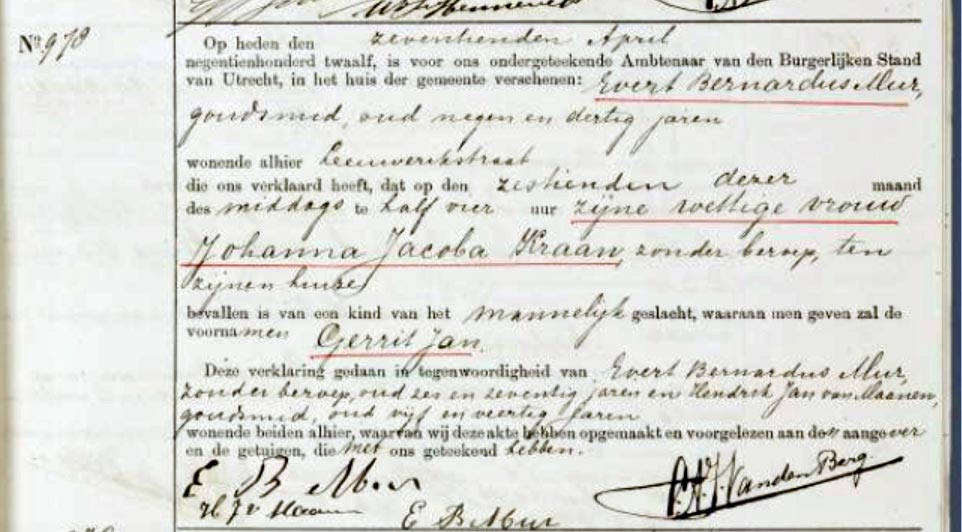 Nº 978
Op heden den zeventienden April
negentienhonderd twaalf, is voor ons ondergeteekende Ambtenaar van den Burgerlijken Stand
van Utrecht, in het huis der gemeente verschenen: Evert Bernardus Mur,
goudsmid, oud negen en dertig jaren
wonende alhier Leeuwerikstraat
die ons verklaard heeft, dat op den zestienden dezer maand
des middags te half vier uur zijne wettige vrouw
Johanna Jacoba Kraan, zonder beroep, ten
zijnen huize
bevallen is van een kind van het mannelijk geslacht, waaraan men geven zal de
voornamen Gerrit Jan.
Deze verklaring gedaan in tegenwoordigheid van Evert Bernardus Mur,
zonder beroep, oud zes en zeventig jaren en Hendrik Jan van Maanen,
goudsmid, oud vijf en veertig jaren
wonende beiden alhier, waarvan wij deze akte hebben opgemaakt en voorgelezen aan den aangever
en de getuigen, die met ons geteekend hebben.
E B Mur
H J v Maanen
E B Mur
V.d. Berg